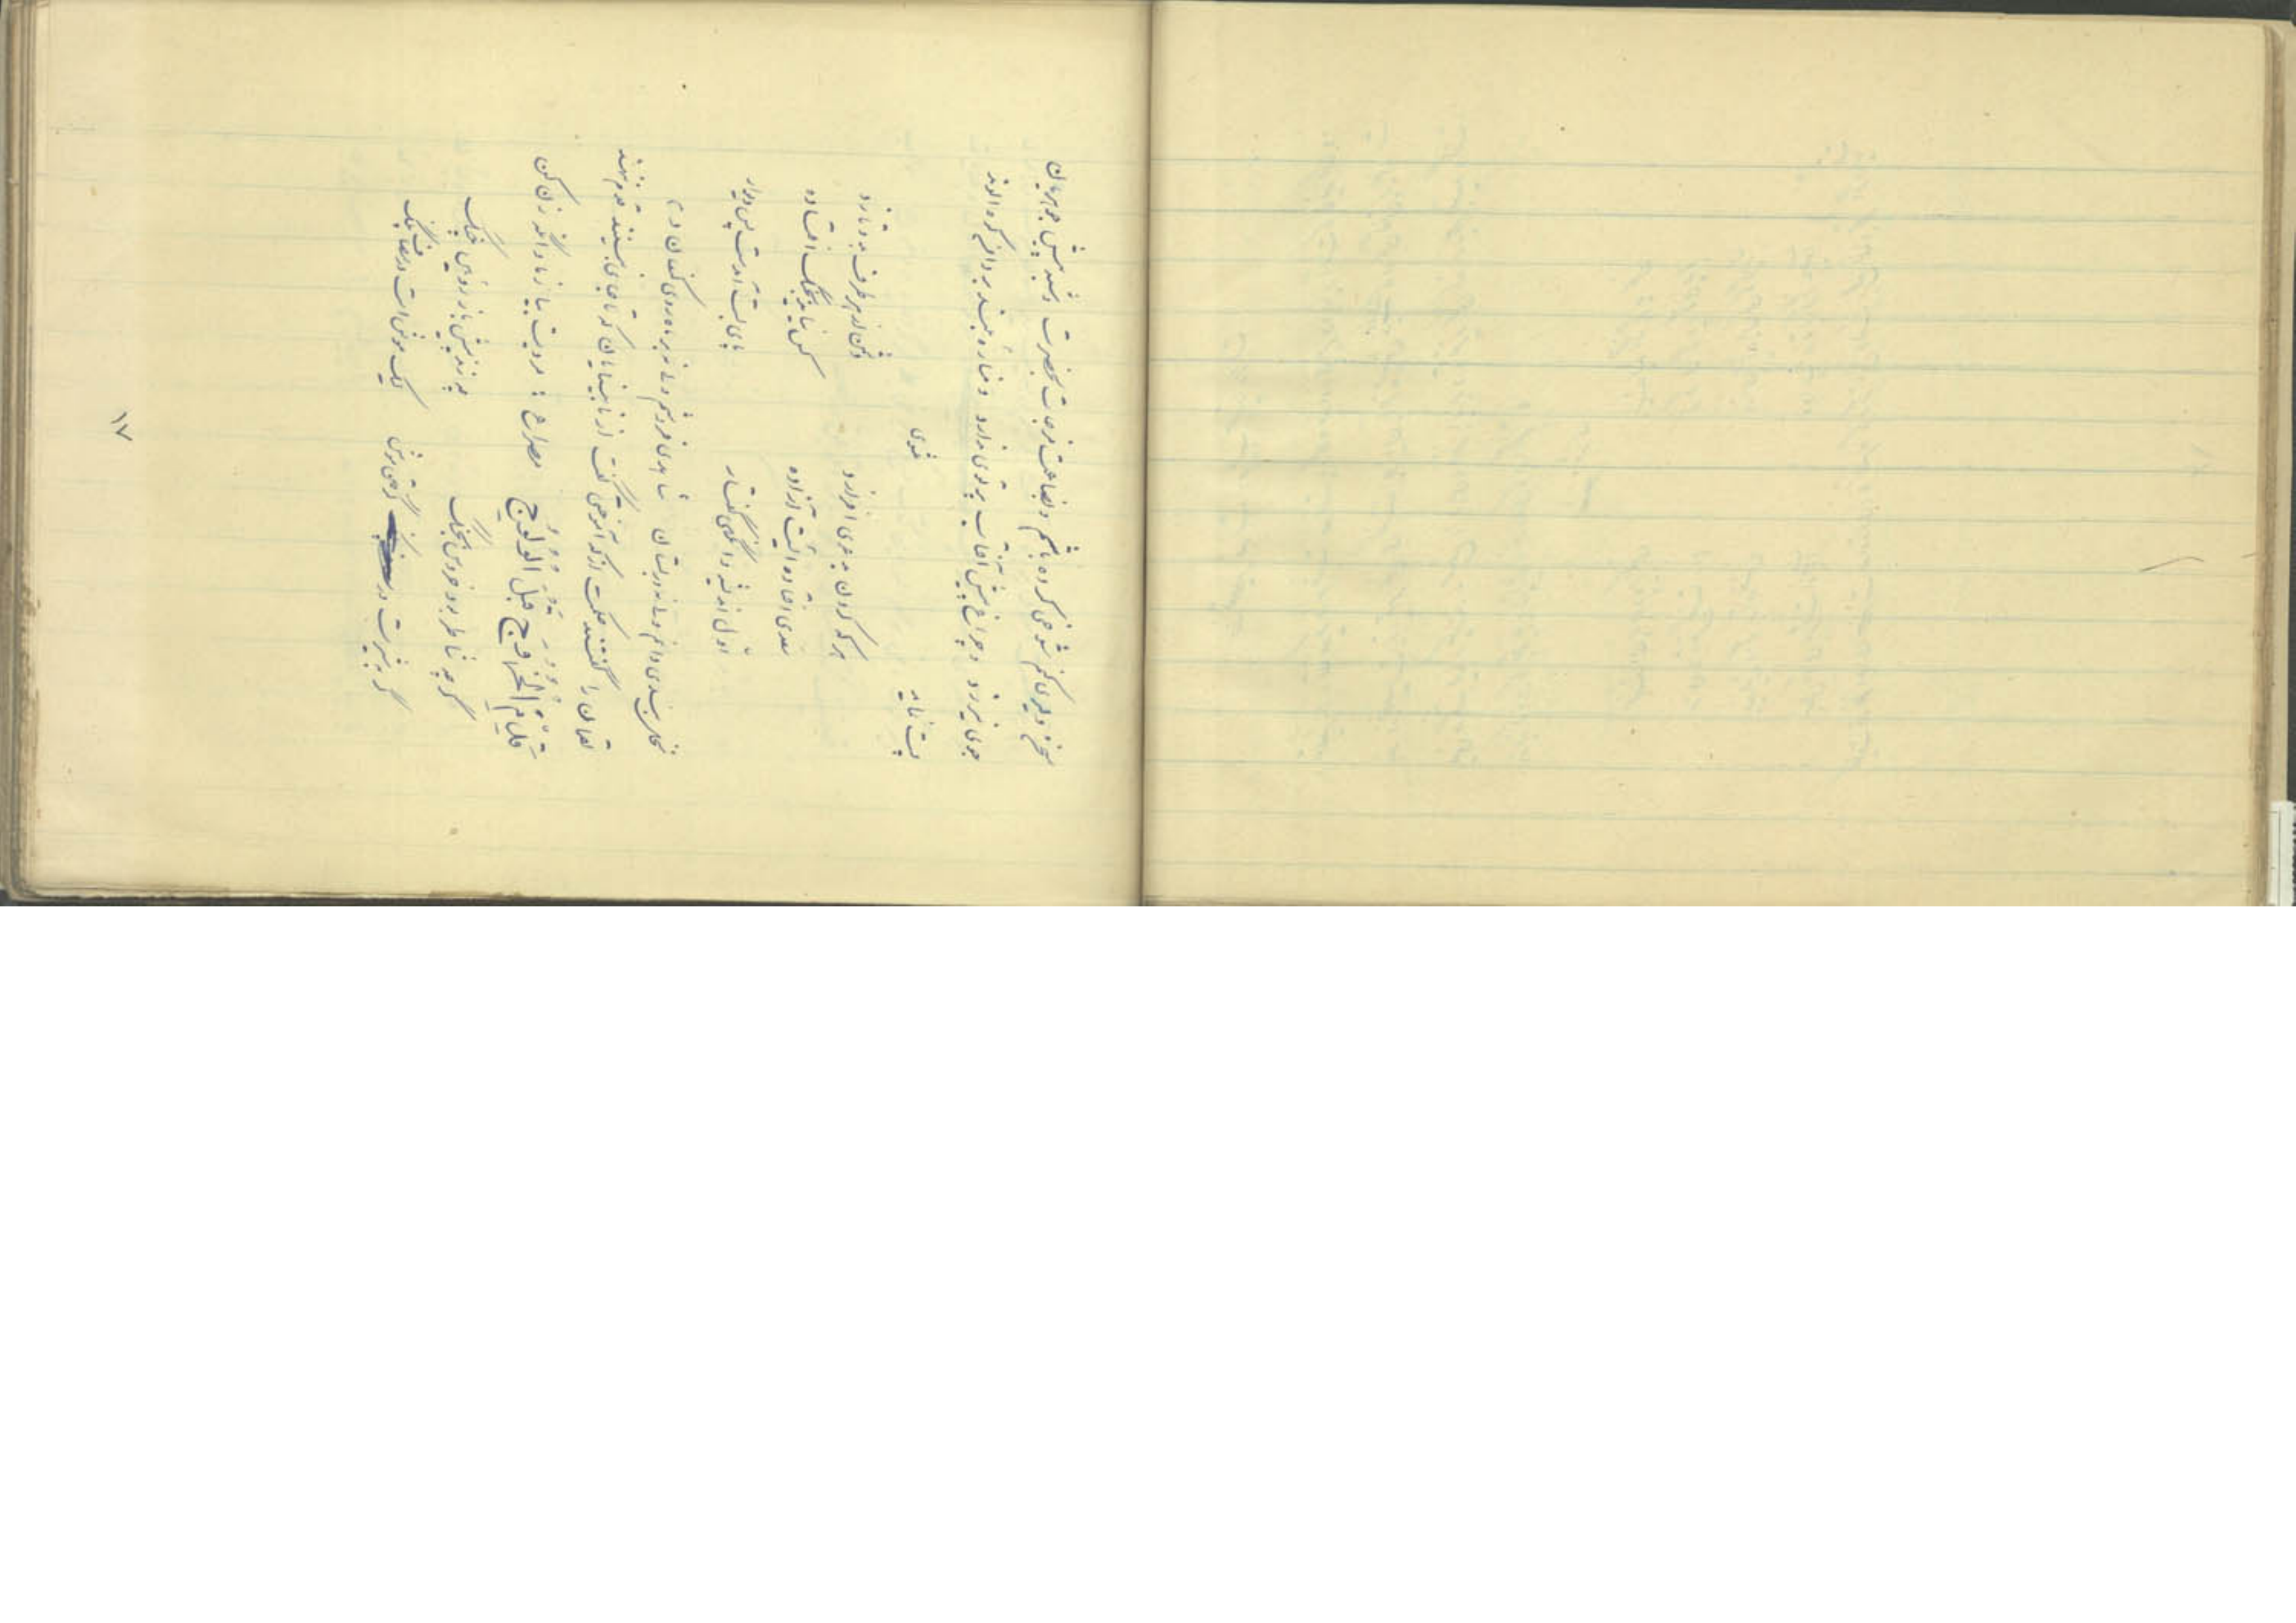 سخن دلیری کنم شوخی کرده باشم و بضاعت مزجات بحضرت عزیز آورده و شبه پیش جوهریان
جوی نیرزد و چراغ پیش آفتاب پرتوی ندارد و مناره بلند بر دامن کوه الوند
پست نماید مثنوی
هر که گردن بدعوی افرازد دشمن از هر طرف بدو تازد
سعدی افتاده ایست آزاده کس نیاید بجنگ افتاده
اول اندیشه وانگهی گفتار پای بست آمدست پس دیوار
نخل بندی دانم ولی نه در بستان شاهدی فروشم ولی نه در کنعان
لقمان را گفتند حکمت از که آموختی گفت از نابینایان که تا جای نبینند قدم ننهند
قَدِّمِ الْخُرُوجَ قَبْلَ الْوُلُوجِ مصراع : مردیت بیازما وانگه زن کن
گرچه شاطر بود خروس بجنگ چه زند پیش باز رویین چنگ
گربه شیرست در گرفتن موش لیک موش است در مصاف پلنگ
۱۷